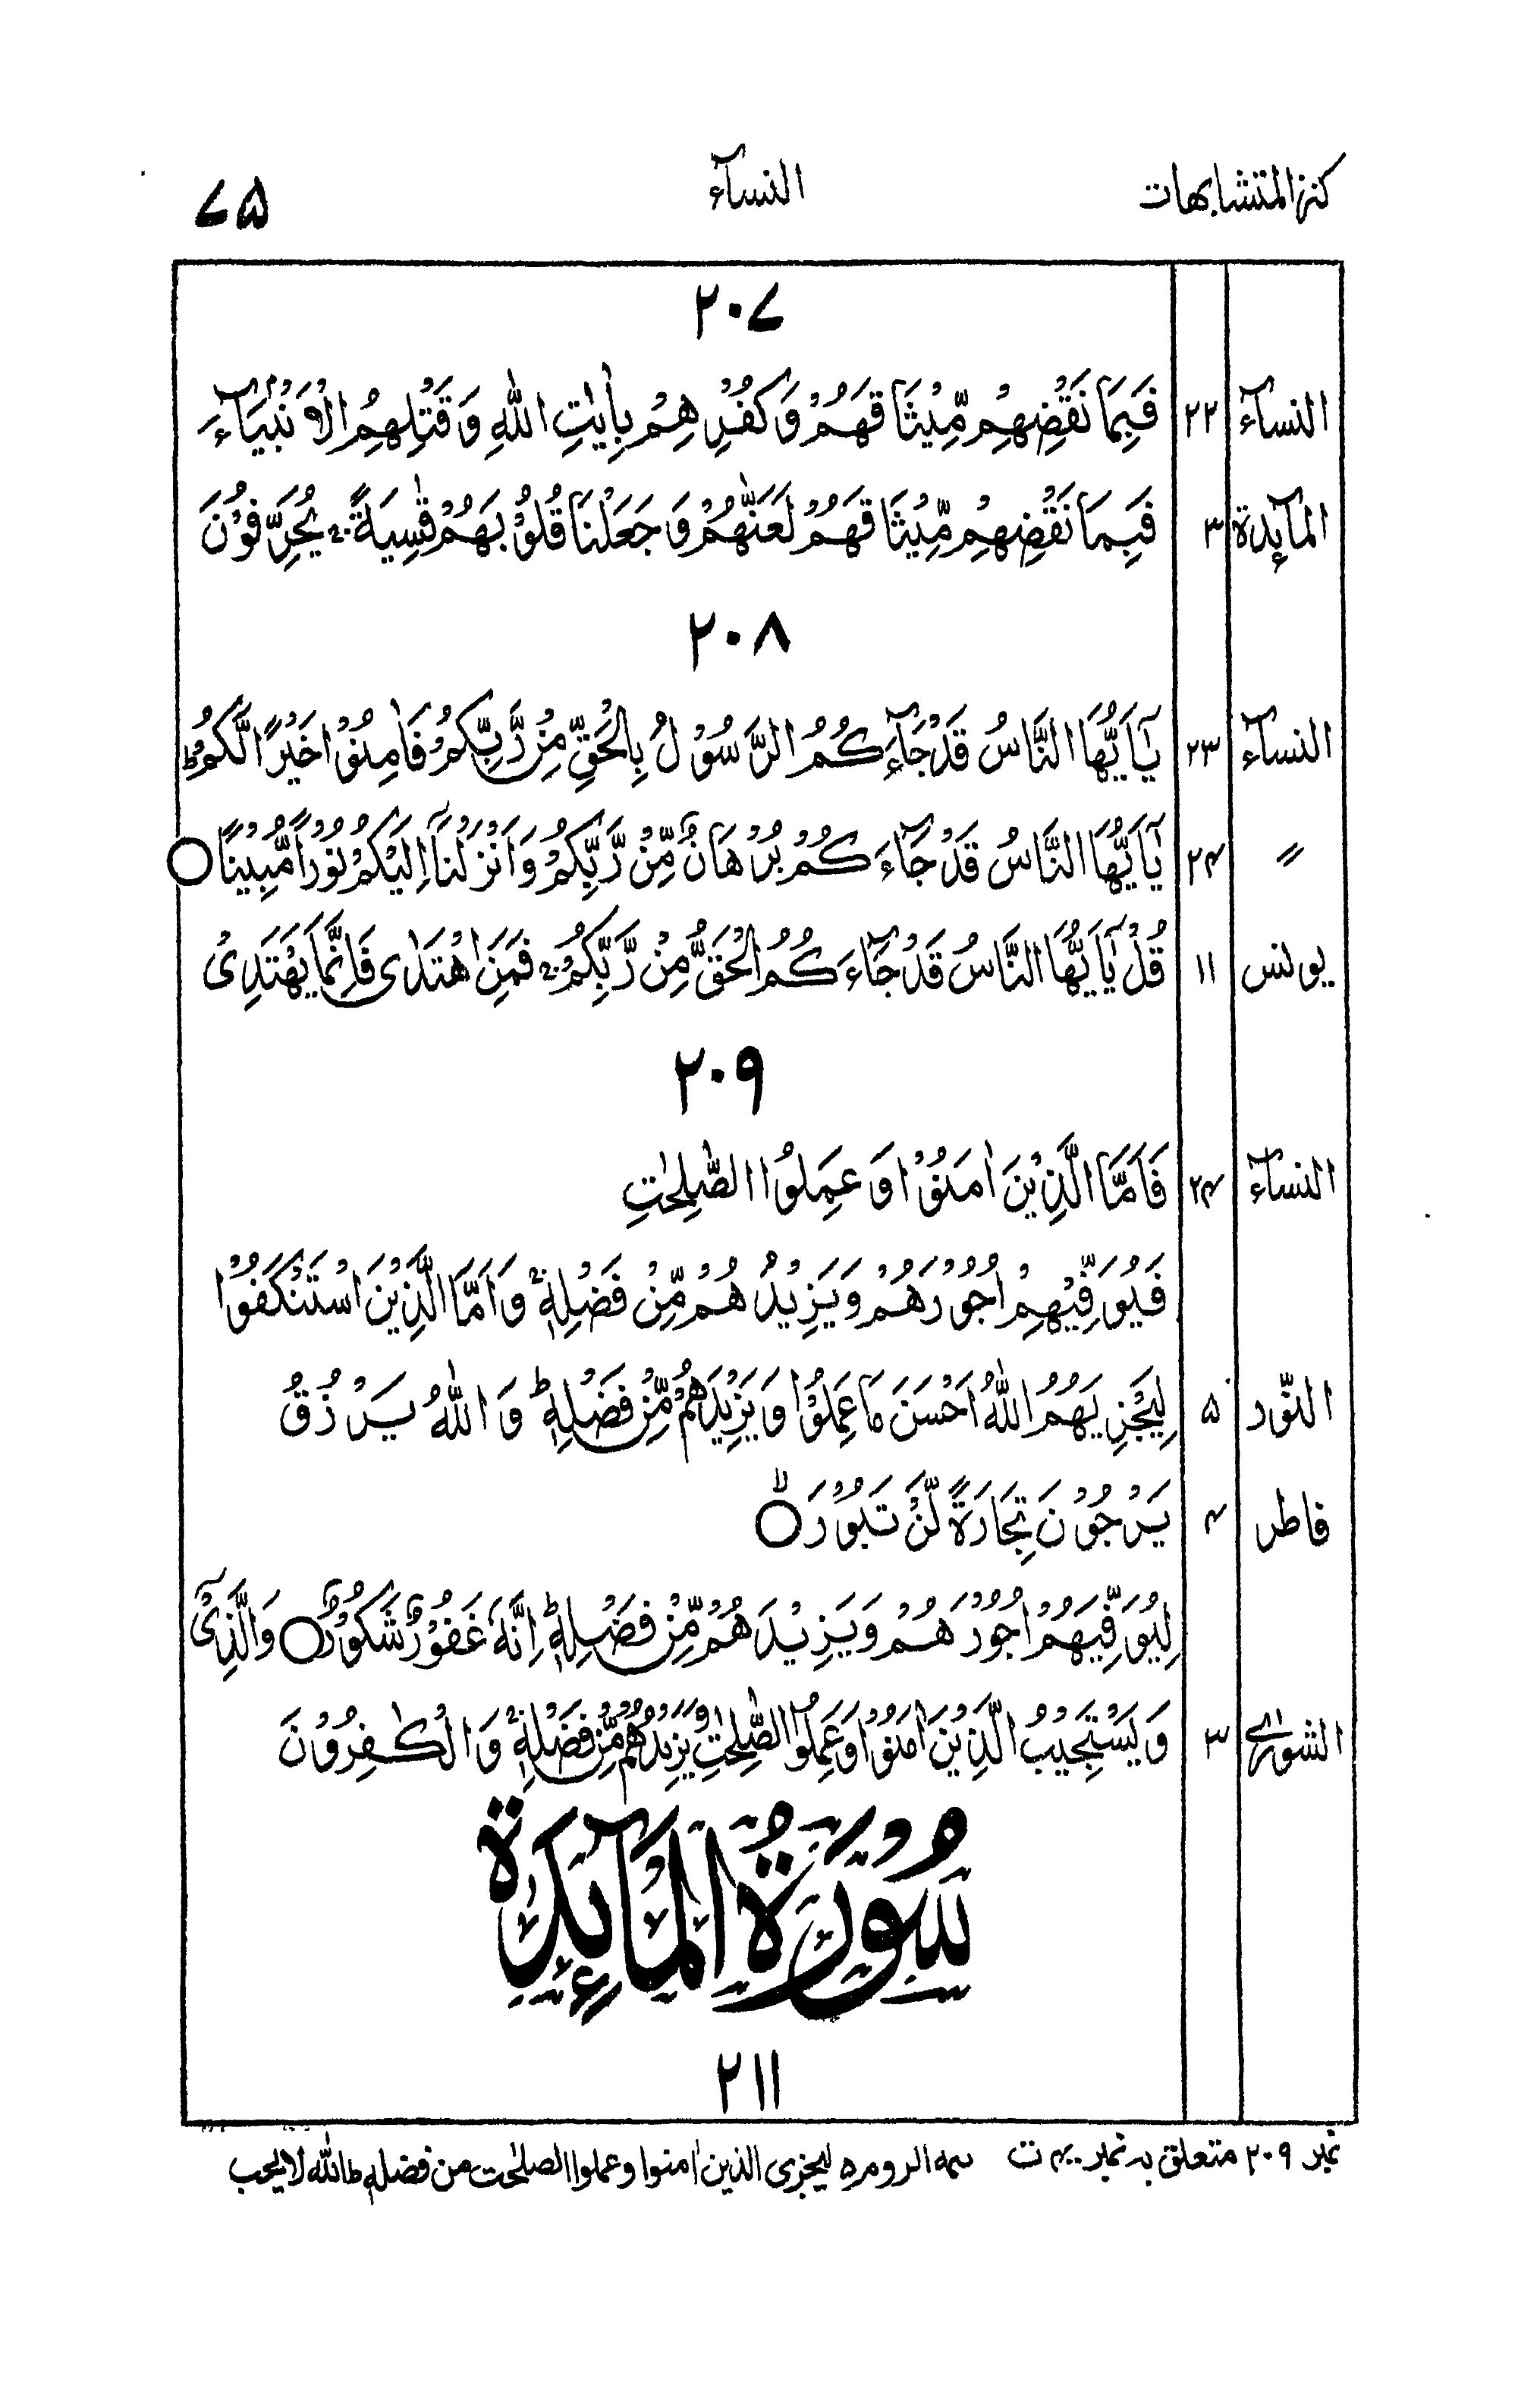 كنز المتشابهات النسآء ۷۵
۲۰۷
النسآء ۲۲ فَبِمَا نَقْضِهِمْ مِّيْثَاقَهُمْ وَكُفْرِهِمْ بِاٰيٰتِ اللّٰهِ وَقَتْلِهِمُ الْاَنْۢبِيَآءَ
المآئدة ۳ فَبِمَا نَقْضِهِمْ مِّيْثَاقَهُمْ لَعَنّٰهُمْ وَجَعَلْنَا قُلُوْبَهُمْ قٰسِيَةً ۚ يُحَرِّفُوْنَ
۲۰۸
النسآء ۲۳ يٰٓاَيُّهَا النَّاسُ قَدْ جَآءَكُمُ الرَّسُوْلُ بِالْحَقِّ مِنْ رَّبِّكُمْ فَاٰمِنُوْا خَيْرًا لَّكُمْ ؕ
〃 ۲۴ يٰٓاَيُّهَا النَّاسُ قَدْ جَآءَكُمْ بُرْهَانٌ مِّنْ رَّبِّكُمْ وَاَنْزَلْنَآ اِلَيْكُمْ نُوْرًا مُّبِيْنًا ○
يونس ۱۱ قُلْ يٰٓاَيُّهَا النَّاسُ قَدْ جَآءَكُمُ الْحَقُّ مِنْ رَّبِّكُمْ ۚ فَمَنِ اهْتَدٰى فَاِنَّمَا يَهْتَدِىْ
۲۰۹
النسآء ۲۴ فَاَمَّا الَّذِيْنَ اٰمَنُوْا وَعَمِلُوا الصّٰلِحٰتِ
فَيُوَفِّيْهِمْ اُجُوْرَهُمْ وَيَزِيْدُهُمْ مِّنْ فَضْلِهٖ ۚ وَاَمَّا الَّذِيْنَ اسْتَنْكَفُوْا
النّور ۵ لِيَجْزِيَهُمُ اللّٰهُ اَحْسَنَ مَا عَمِلُوْا وَيَزِيْدَهُمْ مِّنْ فَضْلِهٖ ؕ وَاللّٰهُ يَرْزُقُ
فاطر ۴ يَرْجُوْنَ تِجَارَةً لَّنْ تَبُوْرَ ○ ۙ
لِيُوَفِّيَهُمْ اُجُوْرَهُمْ وَيَزِيْدَهُمْ مِّنْ فَضْلِهٖ ؕ اِنَّهٗ غَفُوْرٌ شَكُوْرٌ ○ وَالَّذِىْٓ
الشورٰى ۳ وَيَسْتَجِيْبُ الَّذِيْنَ اٰمَنُوْا وَعَمِلُوا الصّٰلِحٰتِ وَيَزِيْدُهُمْ مِّنْ فَضْلِهٖ ؕ وَالْكٰفِرُوْنَ
سُوْرَةُ الْمَآئِدَةِ
۲۱۱
نمبر ۲۰۹ متعلق بہ نمبر ۴۰۰ ت الروم ليجزى الذين اٰمنوا وعملوا الصلحٰت من فضله ط الله لا يحب